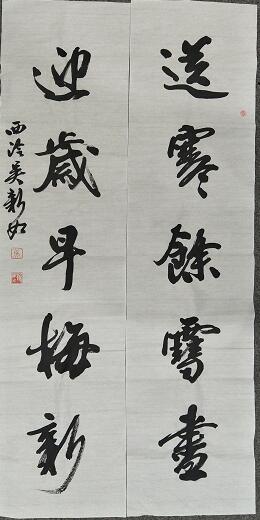 送寒餘雪盡
迎歲早梅新
西泠吴新如